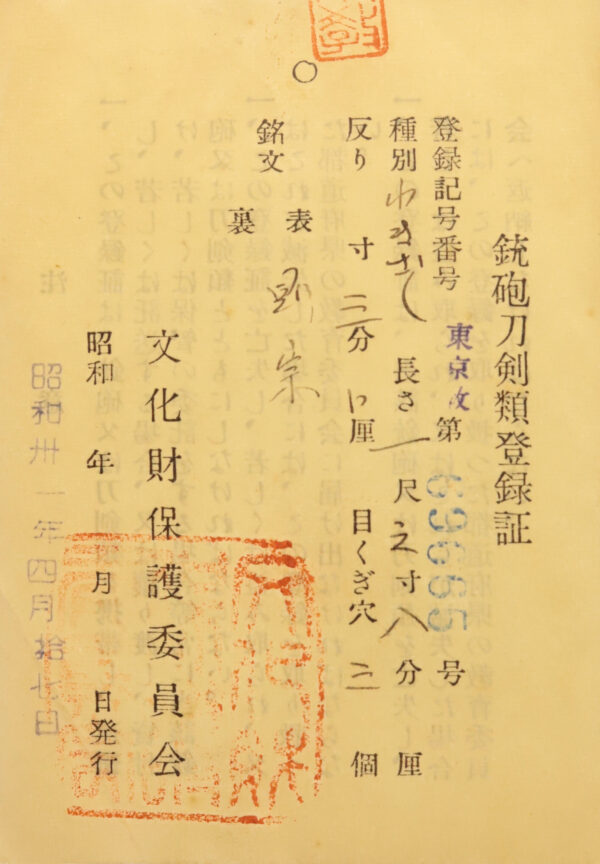 銃砲刀剣類登録証
登録記号番号 東京 第 号
種別 わきざし 長さ 一 尺 之 寸 八 分 厘
反り 寸 三 分 厘 目くぎ穴 三 個
銘文 表 則宗
裏
文化財保護委員会
昭和 年 月 日発行
昭和卅一年四月拾七日